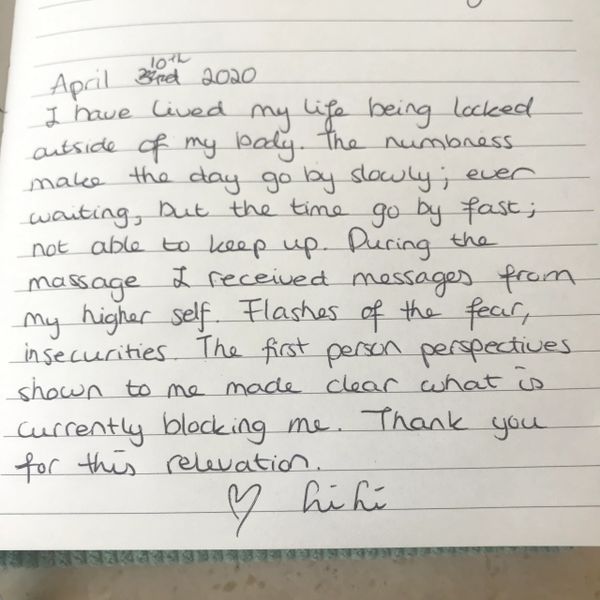 April 10th 2020
I have lived my life being locked
outside of my body. The numbness
make the day go by slowly; ever
waiting, but the time go by fast;
not able to keep up. During the
massage I received messages from
my higher self. Flashes of the fear,
insecurities. The first person perspectives
shown to me made clear what is
currently blocking me. Thank you
for this relevation.
♡ hihi